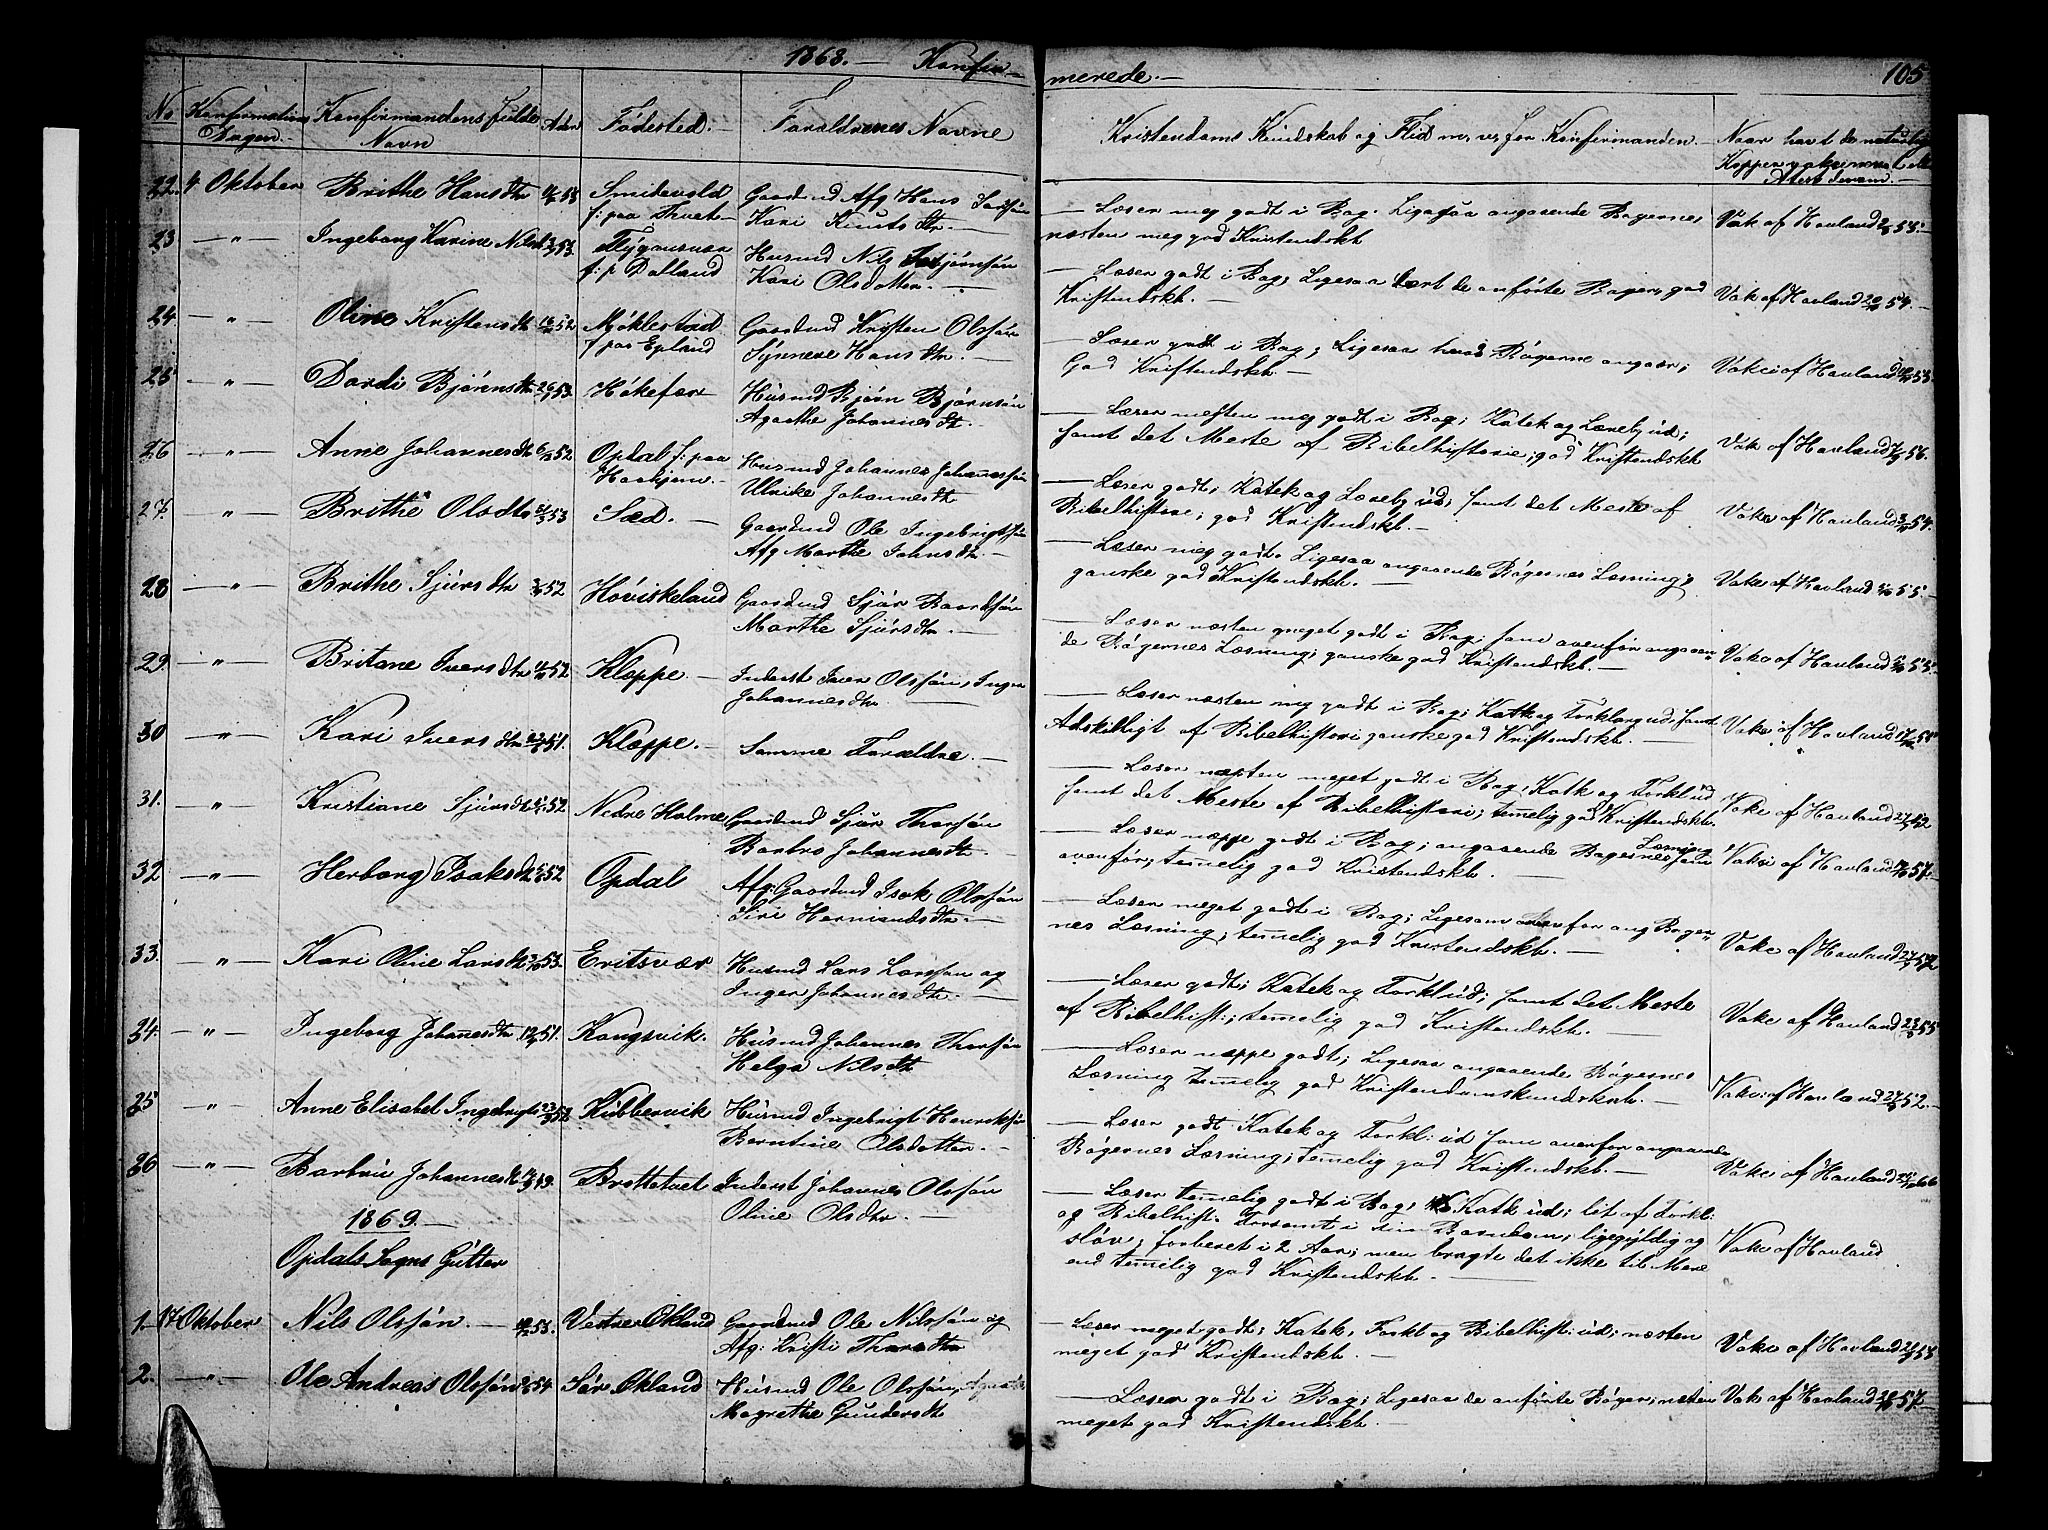 1868. — Konfir-
merede. —
105
No
Konfirmations Dagen.
Konfirmandens fulde Navn
Alder
Fødested. —
Forældrenes Navne
Kristendoms Kundskab og Flid m, v, for Konfirmanden. —
Naar havt de naturlige Kopper
22. 4 Oktober Brithe Hansdtr Smidevold f: paa Tveit Gaardmd Afg Hans Kari Knutsdtr. —
— Læser meg godt i Bog. Ligesaa angaaende Bøgernes,
næsten meg god Kristendskb
Vak af Havland
23 — " — Ingeborg Karine Nilsd 53. f: p Dalland Husmd Nils
Kari Olsdatter. —
— Læser godt i Bog, Ligesaa lært de anførte Bøger, god
Kristendskb. —
Vak af Havland 54. —
24. — " — Oline Kristensdtr 52 Møklestad f paa Epland Gaardmd Kristen Olssøn
Synneve Hansdtr. —
— Læser godt i Bog; Ligesaa hvad Bøgerne angaar;
God Kristendskb. —
Vak af Havland
25 — " — Dordi Bjørnsdtr 53. Høkefær Husmd Bjørn Bjørnsøn
Agathe Johannesdtr. —
— Læser næsten meg godt i Bog; Katek og Læreb ud;
samt det Meste af Bibelhistorie; god Kristendskb
Vak af Havland 56.
26 — " — Anne Johannesdtr 52 Opdal f: paa Husmd Johannes Johannessøn
Ulrike Johannesdtr
— Læser godt; Katek og Læreb ud; samt det Meste af
Bibelhistorie; god Kristendskb. —
Vak af Havland 54.
27. — " — Brithe Olsdtr 53 Sæd. — Gaardmd Ole Ingebrigtsøn
Afg Marthe Johnsdtr. —
— Læser meg godt. Ligesaa angaaende Bøgernes Læsning;
ganske god Kristendskb. —
Vak af Havland 55. —
28 — " — Brithe Sjursdtr 52 Høviskeland Gaardmd Sjur Baardsøn
Marthe Sjursdtr. —
— Læser næsten meget godt i Bog; som ovenfor angaaen-
de Bøgernes Læsning; ganske god Kristendskb. —
Vak af Havland 55. —
29. — " — Britane Iversdtr 52 Kleppe. — Inderst Iver Olssøn, Inger
Johannesdtr. —
— Læser næsten meg godt i Bog; Katk og Forklarg ud, samt
Adskilligt af Bibelhistori ganske god Kristendskb. —
Vak af Havland
30 — " — Kari Iversdtr 51. Kleppe. — Samme Forældre. —
— Læser næsten meget godt i Bog, Katk og Forkl ud
samt det Meste af Bibelhistori; temelig god Kristendskb.
Vak af Havland
31. — " — Kristiane Sjursdtr 52 Nedre Holme Gaardmd Sjur Thorsøn
Barbro Johannesdtr. —
— Læser næppe godt i Bog; angaaende Bøgernes Læsning som
ovenfor; temelig god Kristendskb. —
Vak af Havland 57. —
32 — " — Herborg Isaksd 52 Opdal Afg: Gaardmd Isak Olssøn
Siri Hermundsdtr. —
— Læser meget godt i Bog; Ligesom ovenfor ang Bøger-
nes Læsning; temelig god Kristendskb. —
Vak af Havland
33. — " — Kari Oline Larsd 53. Eritsvær Husmd Lars Larssøn og
Inger Johannesdtr. —
— Læser godt; Katek og Forkl ud; samt det Meste
af Bibelhist:; temelig god Kristendskb. —
Vak af Havland 55
34. — " — Ingeborg Johanesdtr 51. Kongsvik. Husmd Johannes Thorsøn
Helga Nilsdtr
— Læser næppe godt; Ligesaa angaaende Bøgernes
Læsning temelig god Kristendomskundskab. —
Vak af Havland 52. —
35 — " — Anne Elisabet Ingebrigts 52 Kubbervik Husmd Ingebrigt Henriksøn
Berntine Olsdatter. —
— Læser godt Katek og Forkl: ud som ovenfor angaaende
Bøgernes Læsning; temelig god Kristendskb. —
Vak af Havland 66
36 — " — Barbru Johannesd 49. Brottetvet Inderst Johannes Olssøn
Oline Olsdtr. —
— Læser temelig godt i Bog, Katk ud; lit af Forkl:
og Bibelhist. Forsømt i sin Barndom, ligegyldig og
sløv; forberet i 2 Aar; men bragte det ikke til Mere
end temelig god Kristendskb. —
Vak af Havland
1869. —
Opdals Sogns Gutter
1. 17 Oktober Nils Olssøn. — 53. Vestre Økland Gaardmd Ole Nilssøn og
Afg: Kristi Thorsdtr
— Læser meget godt; Katek, Forkl og Bibelhist: ud; næsten
meget god Kristendskb. —
Vak af Havland
2. — " — Ole Andreas Olssøn 54 Sør Økland Husmd Ole Olssøn,
Magrethe Gundersdtr
— Læser godt i Bog; Ligesaa de anførte Bøger; næsten
meget god Kristendskb. —
Vak af Havland 57. —